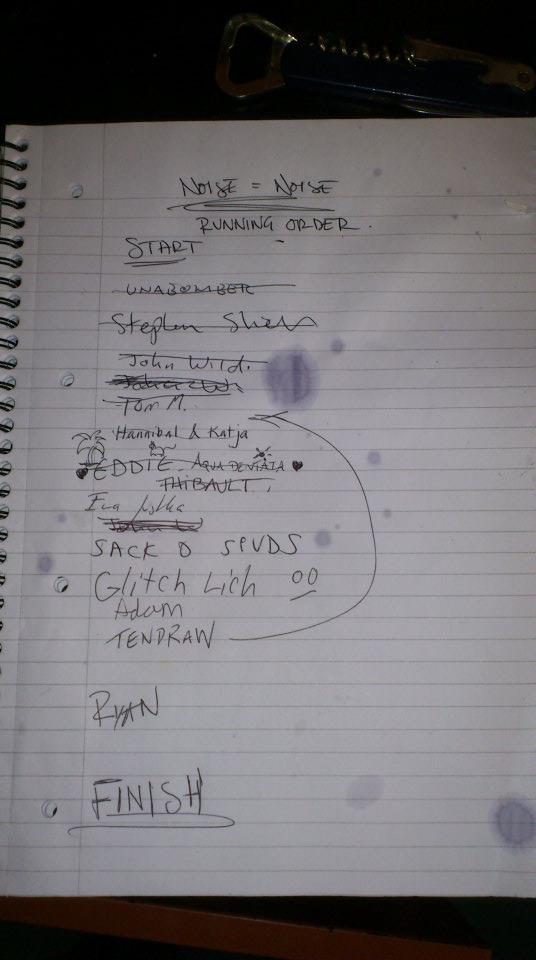 NOISE = NOISE
RUNNING ORDER.
START
UNABOMBER
Stephen
John Wild.
Tom M.
Hannibal & Katja
EDDIE AQUA DENTATA
THIBAULT.
Eva
SACK O SPUDS
Glitch Lich
Adam
TENDRAW
RYAN
FINISH